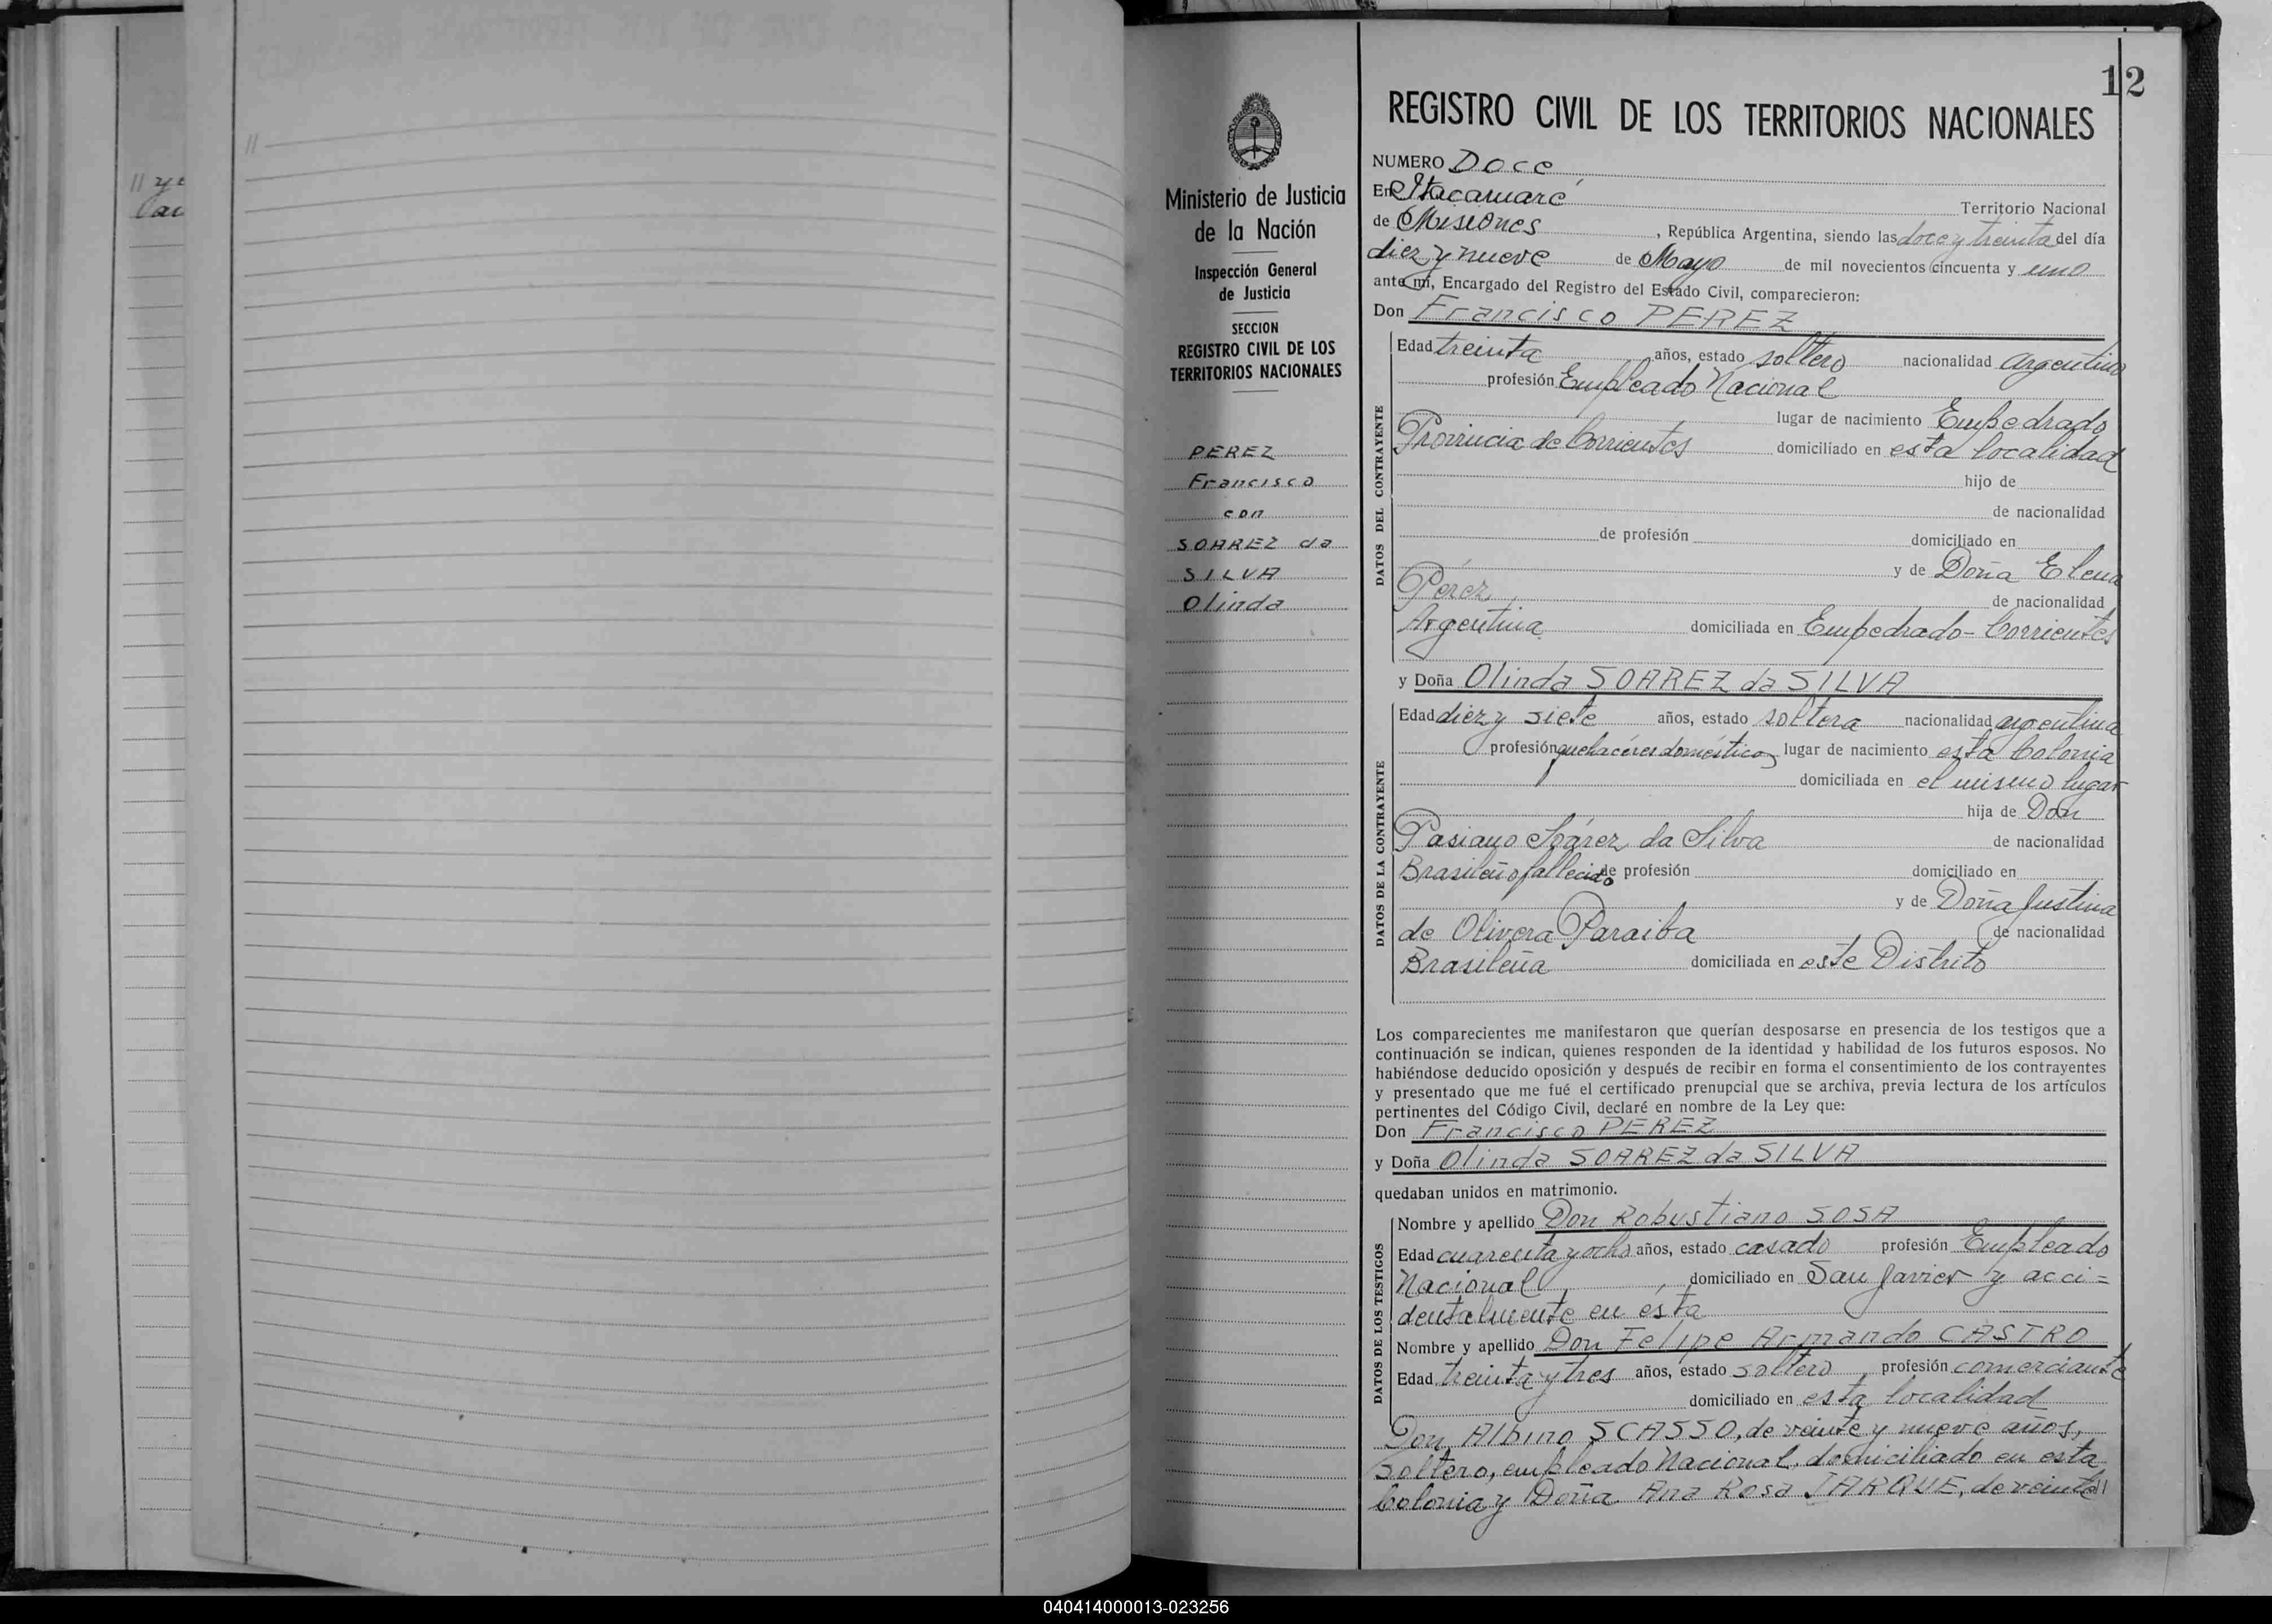 12
REGISTRO CIVIL DE LOS TERRITORIOS NACIONALES
Ministerio de Justicia
de la Nación
Inspección General
de Justicia
SECCION
REGISTRO CIVIL DE LOS
TERRITORIOS NACIONALES
PEREZ
Francisco
con
SOAREZ da
SILVA
Olinda
NUMERO Doce
En Itacaruaré Territorio Nacional
de Misiones, República Argentina, siendo las doce y treinta del día
diez y nueve de Mayo de mil novecientos cincuenta y uno
ante mí, Encargado del Registro del Estado Civil, comparecieron:
Don Francisco PEREZ
DATOS DEL CONTRAYENTE
Edad treinta años, estado soltero nacionalidad argentino
profesión Empleado Nacional
lugar de nacimiento Empedrado
Provincia de Corrientes domiciliado en esta localidad
hijo de
de nacionalidad
de profesión domiciliado en
y de Doña Elena
Pérez de nacionalidad
Argentina domiciliada en Empedrado - Corrientes
y Doña Olinda SOAREZ da SILVA
DATOS DE LA CONTRAYENTE
Edad diez y siete años, estado soltera nacionalidad argentina
profesión quehaceres domésticos lugar de nacimiento esta Colonia
domiciliada en el mismo lugar
hija de Don
Pasiano Soárez da Silva de nacionalidad
Brasileño fallecido de profesión domiciliado en
y de Doña Justina
de Olivera Paraiba de nacionalidad
Brasileña domiciliada en este Distrito
Los comparecientes me manifestaron que querían desposarse en presencia de los testigos que a
continuación se indican, quienes responden de la identidad y habilidad de los futuros esposos. No
habiéndose deducido oposición y después de recibir en forma el consentimiento de los contrayentes
y presentado que me fué el certificado prenupcial que se archiva, previa lectura de los artículos
pertinentes del Código Civil, declaré en nombre de la Ley que:
Don Francisco PEREZ
y Doña Olinda SOAREZ da SILVA
quedaban unidos en matrimonio.
DATOS DE LOS TESTIGOS
Nombre y apellido Don Robustiano SOSA
Edad cuarenta y ocho años, estado casado profesión Empleado
Nacional, domiciliado en San Javier y acci=
dentalmente en ésta
Nombre y apellido Don Felipe Armando CASTRO
Edad treinta y tres años, estado soltero, profesión comerciante
domiciliado en esta localidad
Don Albino SCASSO, de veinte y nueve años,
Soltero, empleado Nacional, domiciliado en esta
Colonia y Doña Ana Rosa JARQUE, de veinte//
040414000013-023256